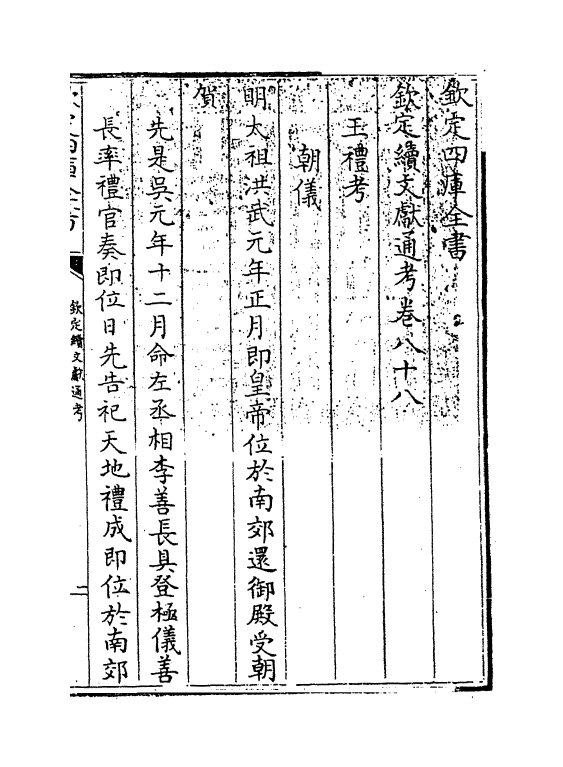 欽定四庫全書
欽定續文獻通考卷八十八
王禮考
朝儀
明太祖洪武元年正月即皇帝位於南郊還御殿受朝
賀
先是吳元年十二月命左丞相李善長具登極儀善
長率禮官奏即位日先告祀天地禮成即位於南郊
欽定四庫全書
欽定續文獻通考